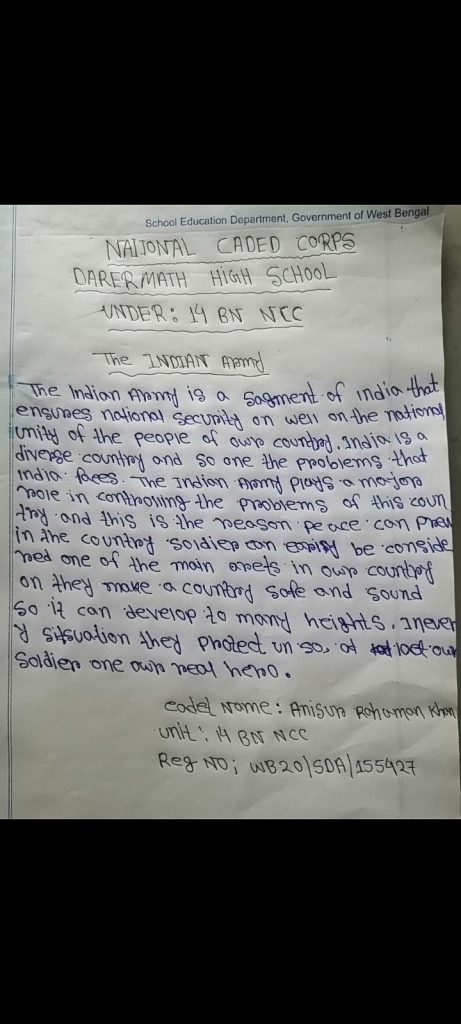 School Education Department, Government of West Bengal
NAIJONAL CADED CORPS
DARERMATH HIGH SCHOOL
UNDER: 14 BN NCC
The INDIAN Army
The Indian Army is a sagment of india that
ensures national security on well on the national
unity of the people of own country. India is a
diverse country and so one the problems that
india faces. The Indian Army plays a major
role in controlling the problems of this coun
try and this is the reason peace can prev
in the country soldier can easily be conside
red one of the main arets in own country
on they make a country safe and sound
so it can develop to many heights. Inever
y sitsuation they protect un so, at last own
soldier one own real hero.
cadet Name: Anisur Rahaman Khan
unit: 14 BN NCC
Reg NO; WB20/SDA/155427